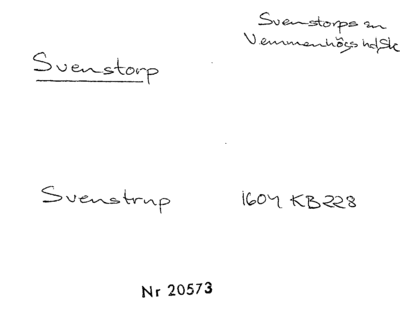 Svenstorps sn
Vemmenhögs hd, Sk
Svenstorp
Svenstrup 1604 KB 228
Nr 20573